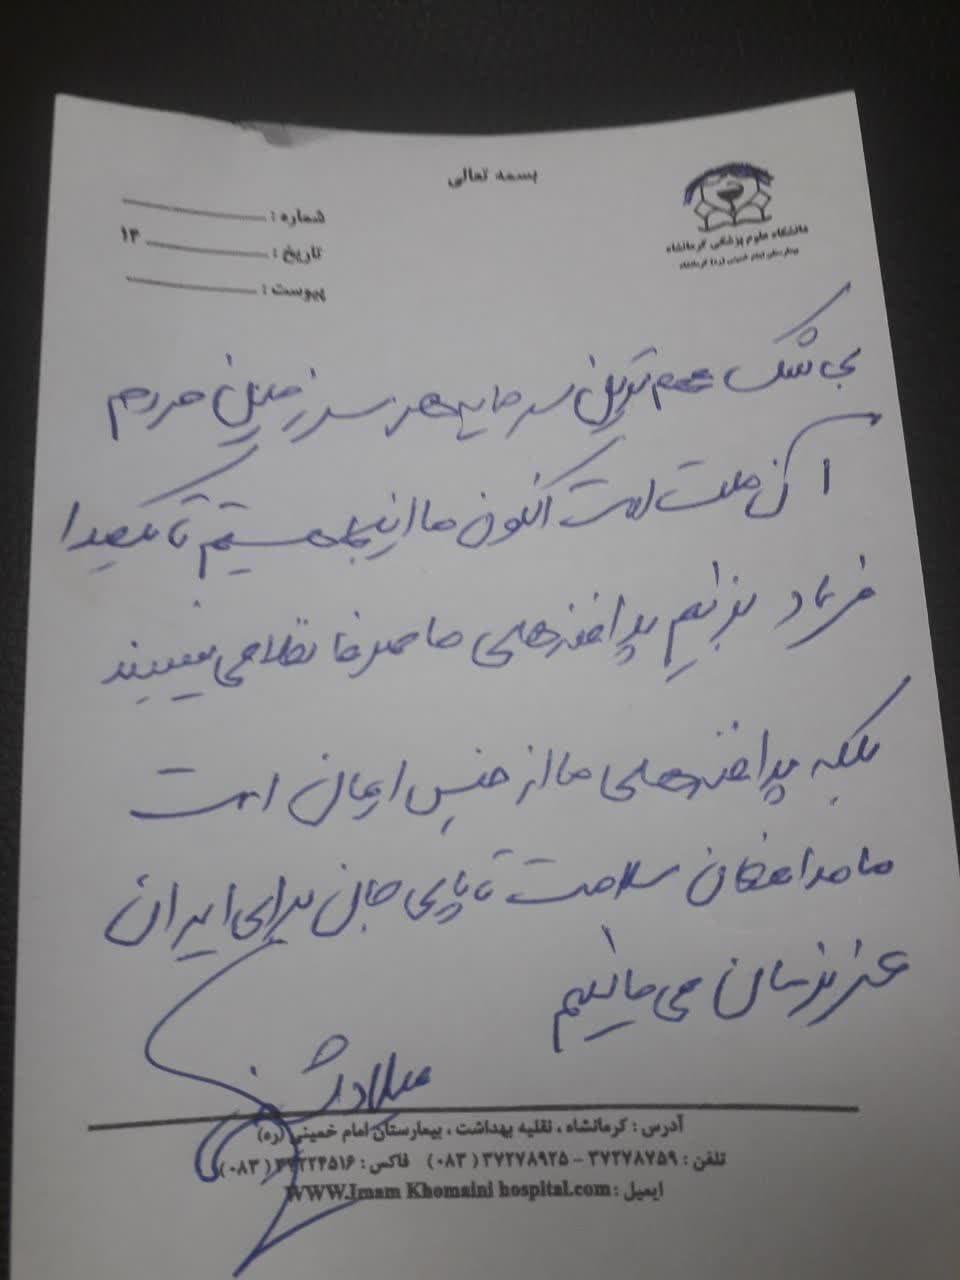 بسمه تعالی
دانشگاه علوم پزشکی کرمانشاه
بیمارستان امام خمینی (ره) کرمانشاه
شماره :
تاریخ : ۱۳
پیوست :
بی شک مهم ترین سرمایه هر سرزمین مردم
آن ملت است اکنون ما اینجا هستیم تا یکصدا
فریاد بزنیم پدافندهای ما صرفا نظامی نیستند
بلکه پدافندهای ما از جنس ایمان است
ما مدافعان سلامت تا پای جان برای ایران
عزیزمان می مانیم
میلاد
آدرس : کرمانشاه ، نقلیه بهداشت ، بیمارستان امام خمینی (ره)
تلفن : ۳۷۲۷۸۷۵۹ - ۳۷۲۷۸۹۲۵ (۰۸۳) فاکس : (۰۸۳)
ایمیل : WWW.Imam Khomaini hospital.com